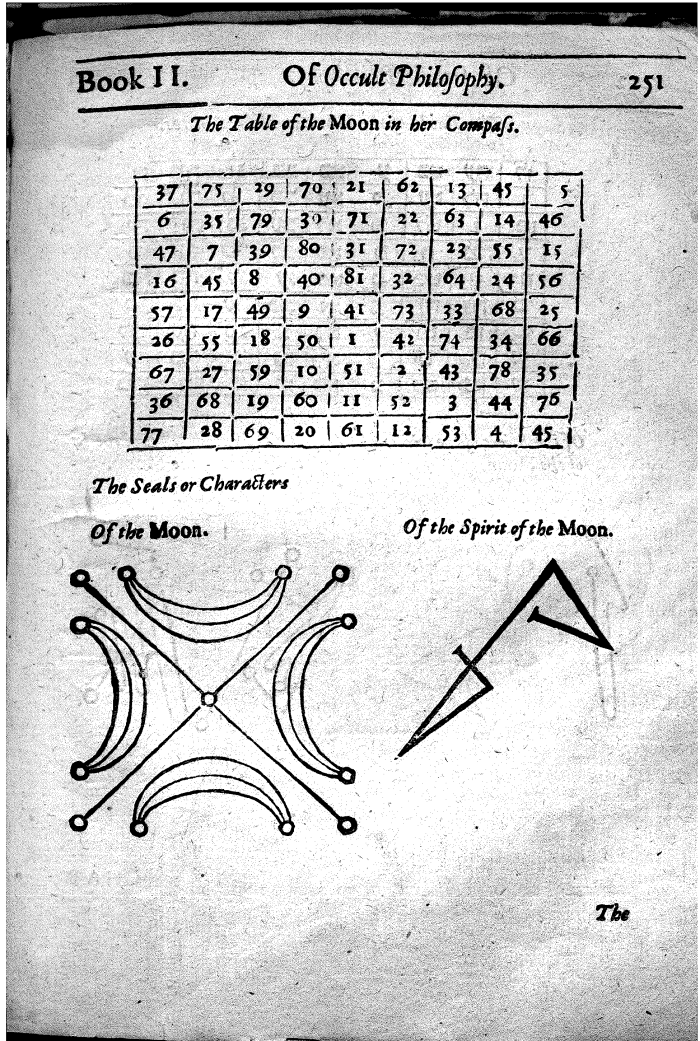 Book II. Of Occult Philoſophy. 251
The Table of the Moon in her Compaſs.
37 75 29 70 21 62 13 45 5
6 35 79 30 71 22 63 14 46
47 7 39 80 31 72 23 55 15
16 45 8 40 81 32 64 24 56
57 17 49 9 41 73 33 68 25
26 55 18 50 1 42 74 34 66
67 27 59 10 51 2 43 78 35
36 68 19 60 11 52 3 44 76
77 28 69 20 61 12 53 4 45
The Seals or Characters
Of the Moon. Of the Spirit of the Moon.
The